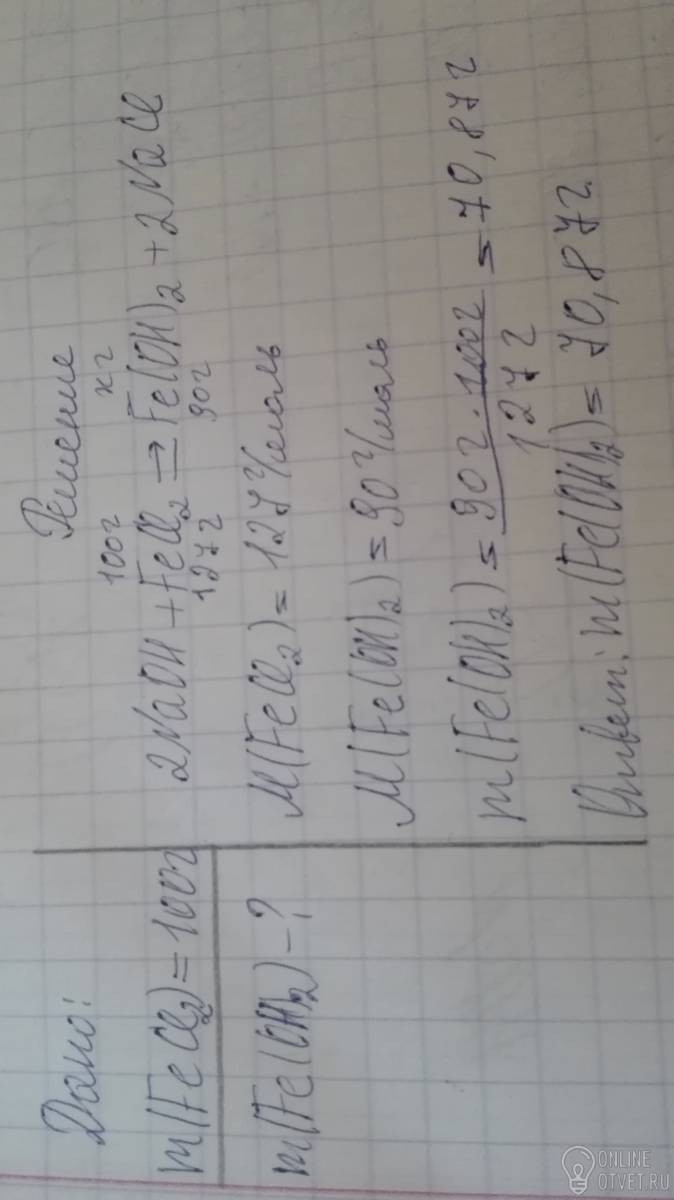 Дано:
m(FeCl₂)=100г
m(Fe(OH)₂)-?
Решение
100г хг
2NaOH+FeCl₂=Fe(OH)₂+2NaCl
127г 90г
M(FeCl₂)=127г/моль
M(Fe(OH)₂)=90г/моль
m(Fe(OH)₂)=90г·100г/127г=70,87г
Ответ: m(Fe(OH)₂)=70,87г.
ONLINE
OTVET.RU